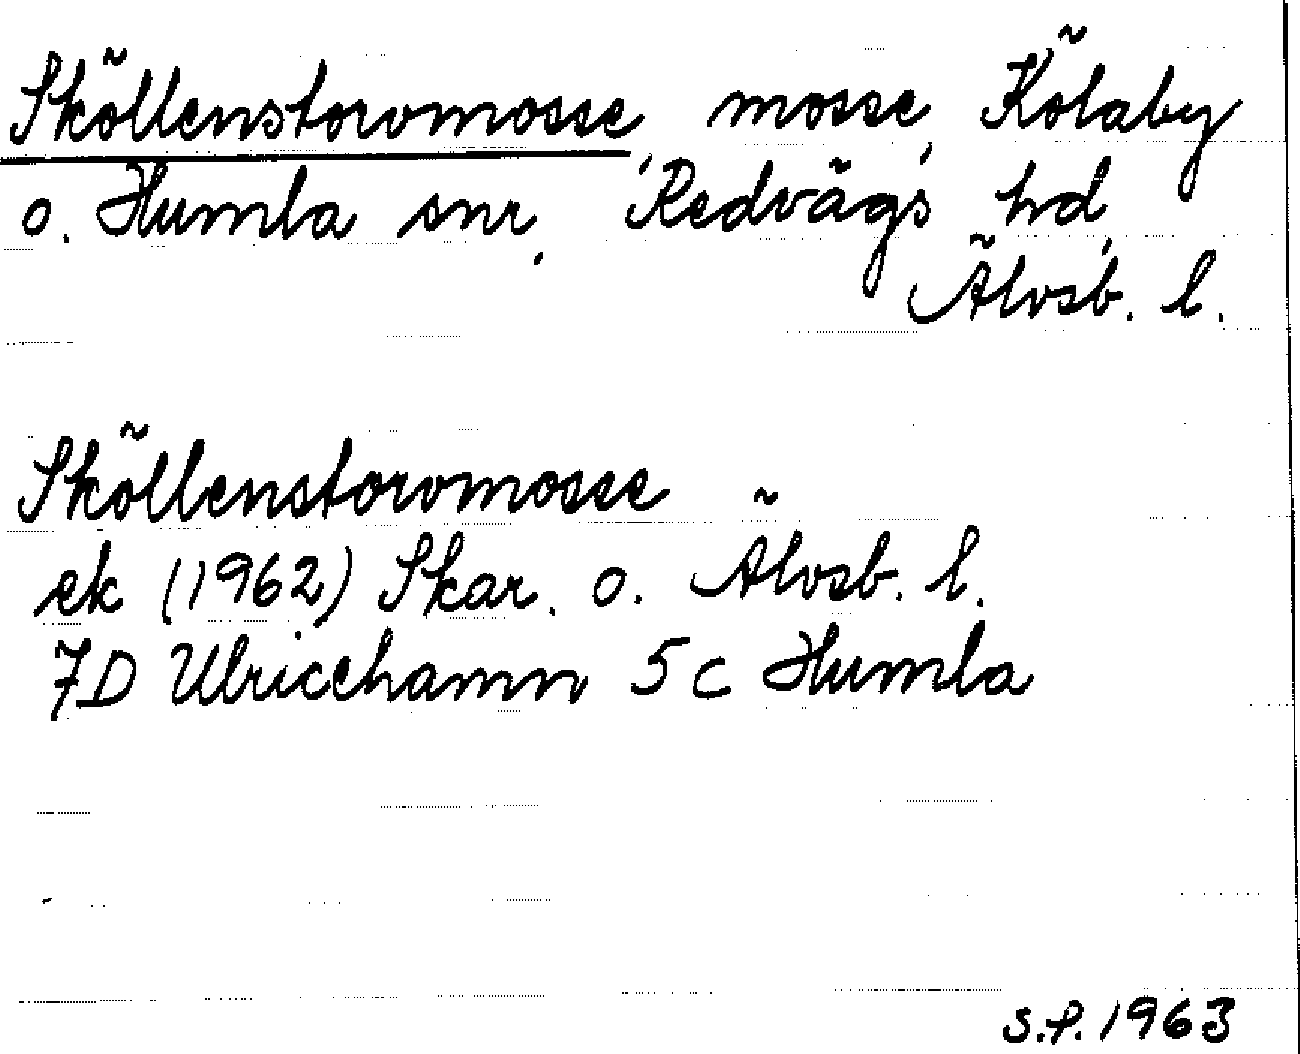 Sköllenstorvmosse, mosse, Kölaby
o. Humla snr, Redvägs hd,
Älvsb. l.
Sköllenstorvmosse
ek (1962) Skar. o. Älvsb. l.
7D Ulricehamn 5c Humla
S.P. 1963